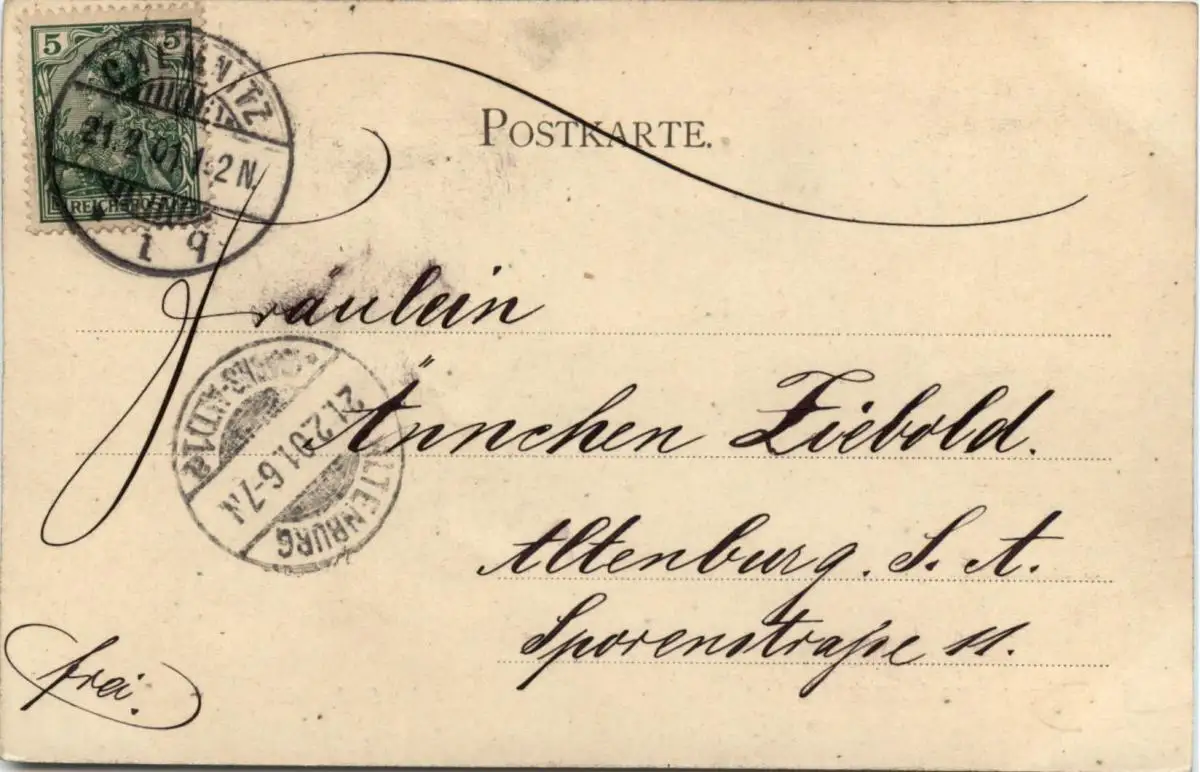 5 5
REICHSPOST
CHEMNITZ
21. 2. 01. 1-2 N.
1 q
POSTKARTE.
Fräulein
Ännchen Ziebold.
Altenburg. S. A.
Sporenstraße 11.
frei.
ALTENBURG
21.2.01. 6-7 N.